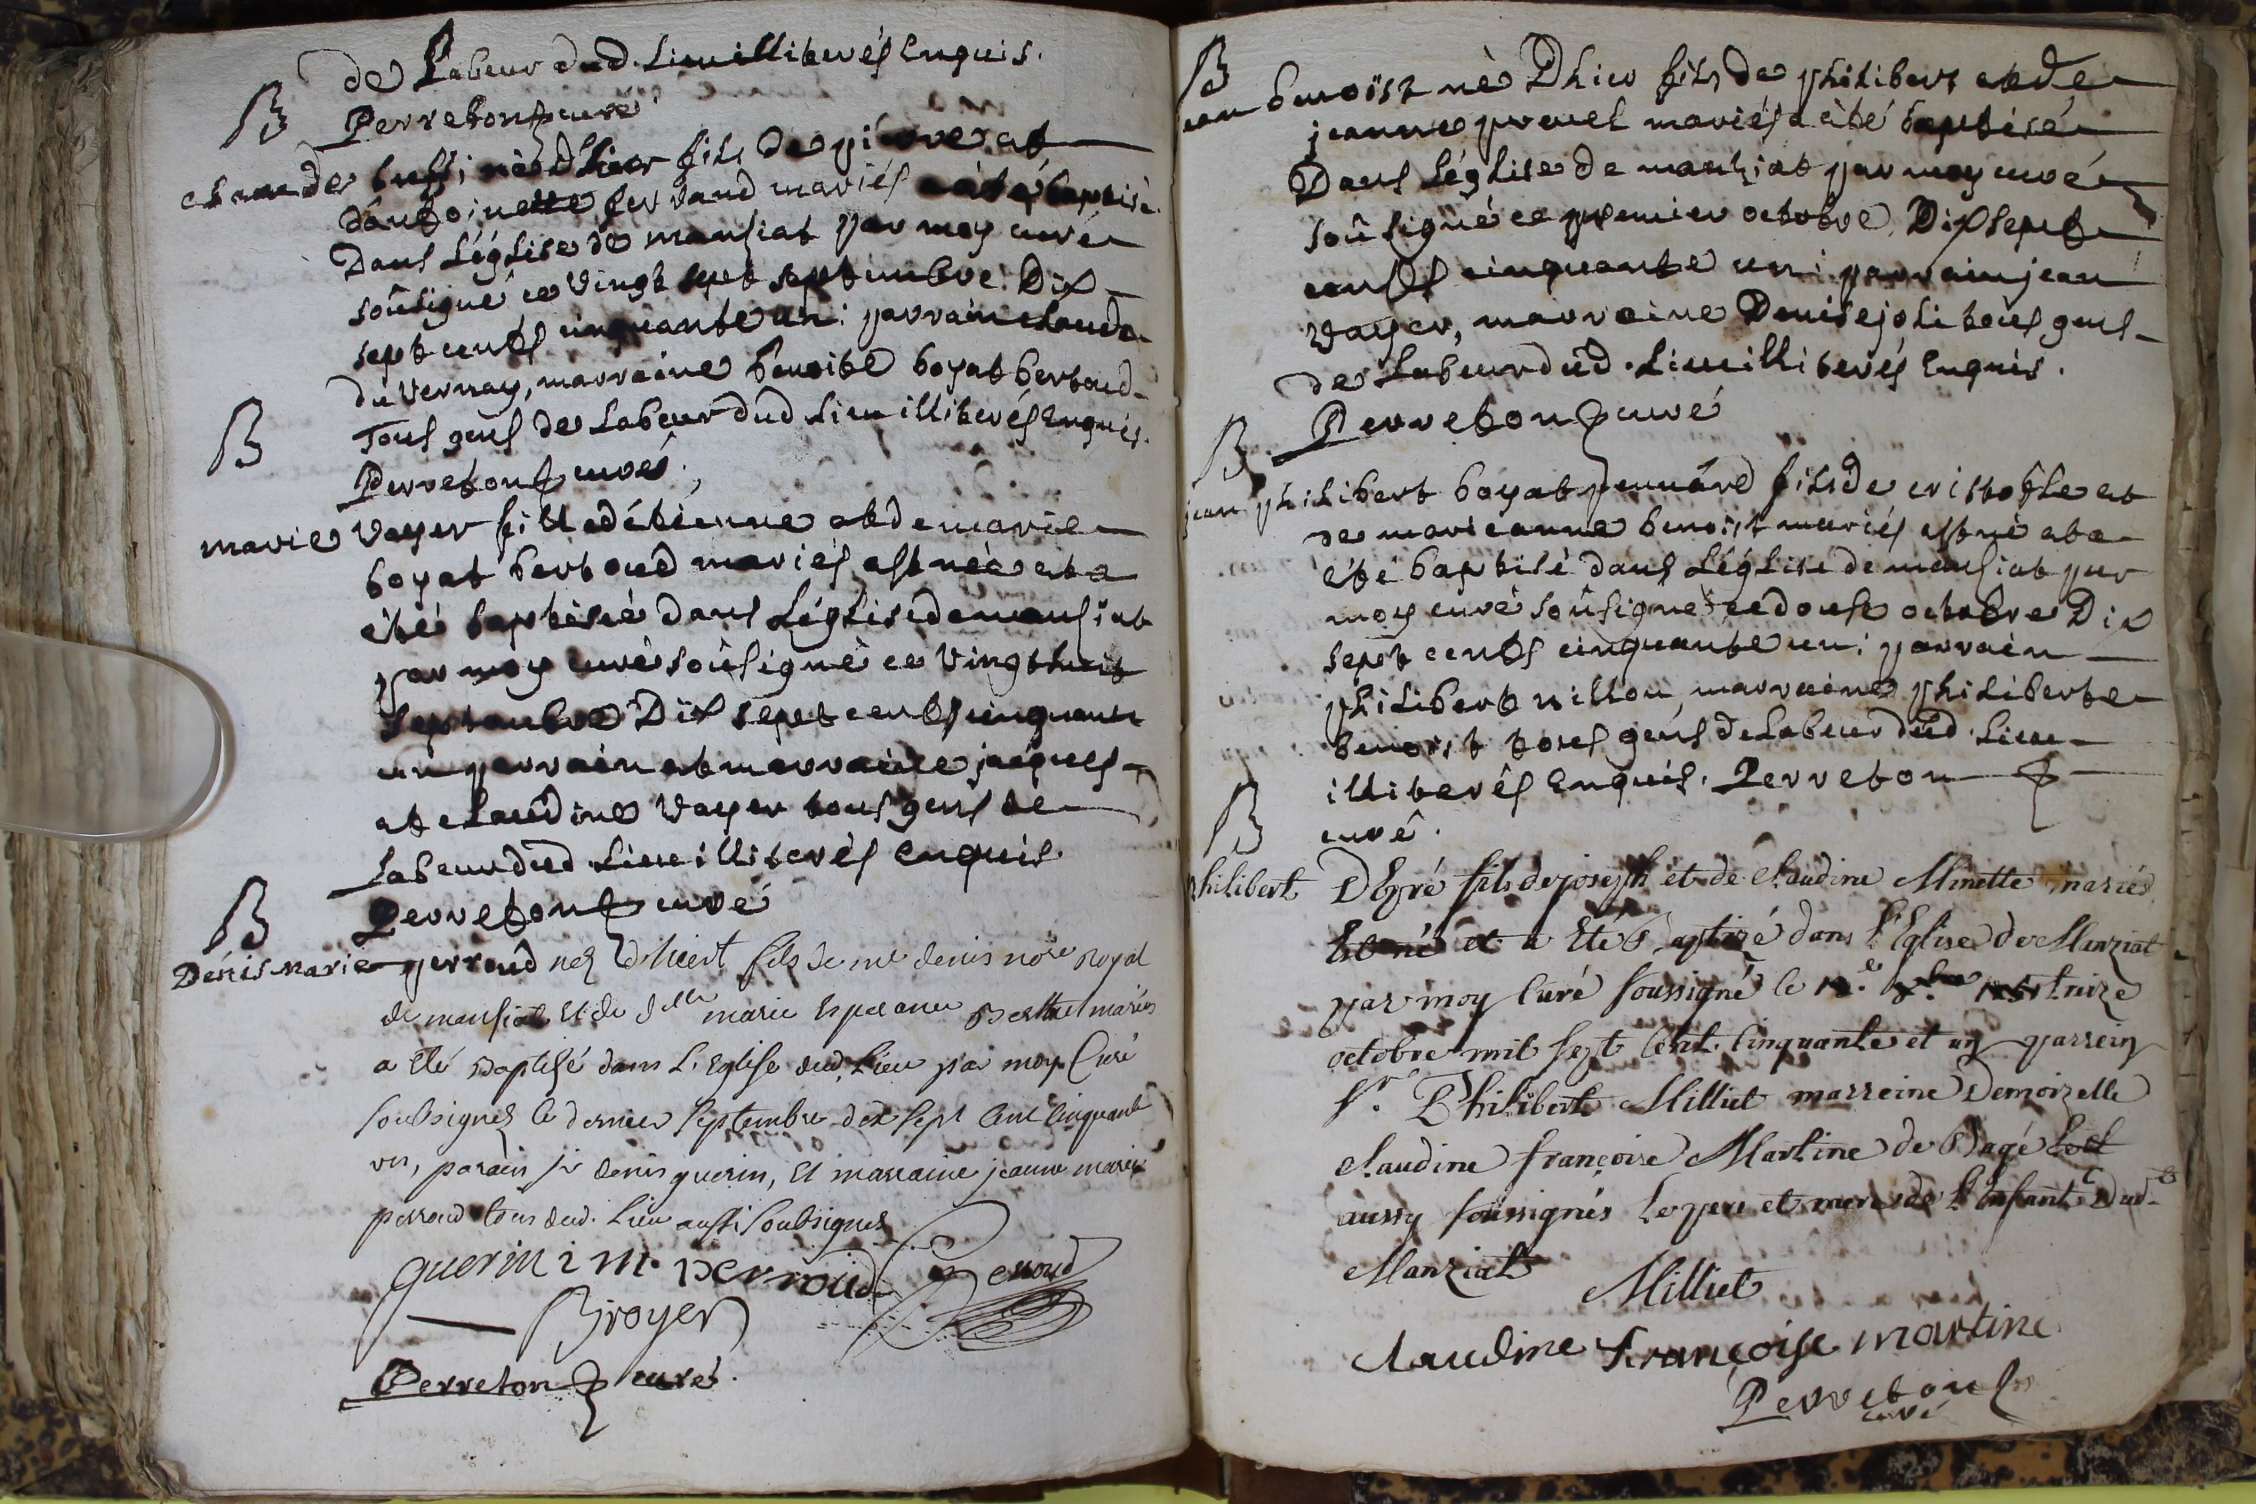 de Labeur dud. Lieu illiterés Enquis.
B
Perreton curé
claude buffi né D'hier fils de pierre et
d'antoinette fer vand mariés a été baptisé
Dans Léglise de mansiat par moy curé
soûsigné ce vingt sept septembre Dix
sept cents cinquante un: parrain claude
du vernay, marraine benoite boyat bertoud
Tous gens de Labeur dud Lieu illiterés Enquis.
B
Perreton curé
marie vayer fille d'étienne et de marie
boyat bertoud mariés est née et a
été baptisée dans Léglise de mansiat
par moy curé soûsigné ce vingt huit
septembre Dix sept cents cinquante
un parrain et marraine jacques
et claudine vayer tous gens de
Labeur dud. Lieu illiterés enquis.
B
Perreton curé
Denis marie perroud nez d'hiert fils de me denis nore royal
de mansiat Et de delle marie Esperance mariés
a Eté Baptisé dans L'Eglise dud. Lieu par moy Curé
soubsignez le dernier septembre dix sept Cent Cinquante
un, parain sr denis guerin, Et marraine jeanne marie
perroud tous dud. Lieu aussi soubsignez
guerin i m. perroud Perroud
Broyer
Perreton curé.
B
jean benoist né D'hier fils de philibert et de
jeanne pruel mariés a été baptisé
Dans Léglise de manziat par moy curé
soûsigné ce premier octobre Dix sept
cents cinquante un: parrain jean
vayer, marraine Denise joli tous gens
de Labeur dud. Lieu illiterés Enquis.
Perreton curé
B
jean philibert boyat penuard fils de cristofle et
de marieanne benoist mariés est né et a
été baptisé dans Léglise de mansiat par
moy curé soûsigné ce douse octobre Dix
sept cents cinquante un: parrain
philibert nillon, marraine philiberte
benoist tous gens de Labeur dud. Lieu
illiterés Enquis. Perreton
curé.
B
Philibert Dégré fils de joseph et de Claudine Minette mariés
Est né et a Eté Baptizé dans l'Eglise de Manziat
par moy Curé soussigné le treize
octobre mil sept Cent Cinquante et un parrein
sr. Philibert Milliet marreine Demoizelle
Claudine françoise Martine de Bagé
aussy soussignés Le pere et mere de l'Enfant Dud.
Manziat
Milliet
Claudine françoise martine
Perreton
curé